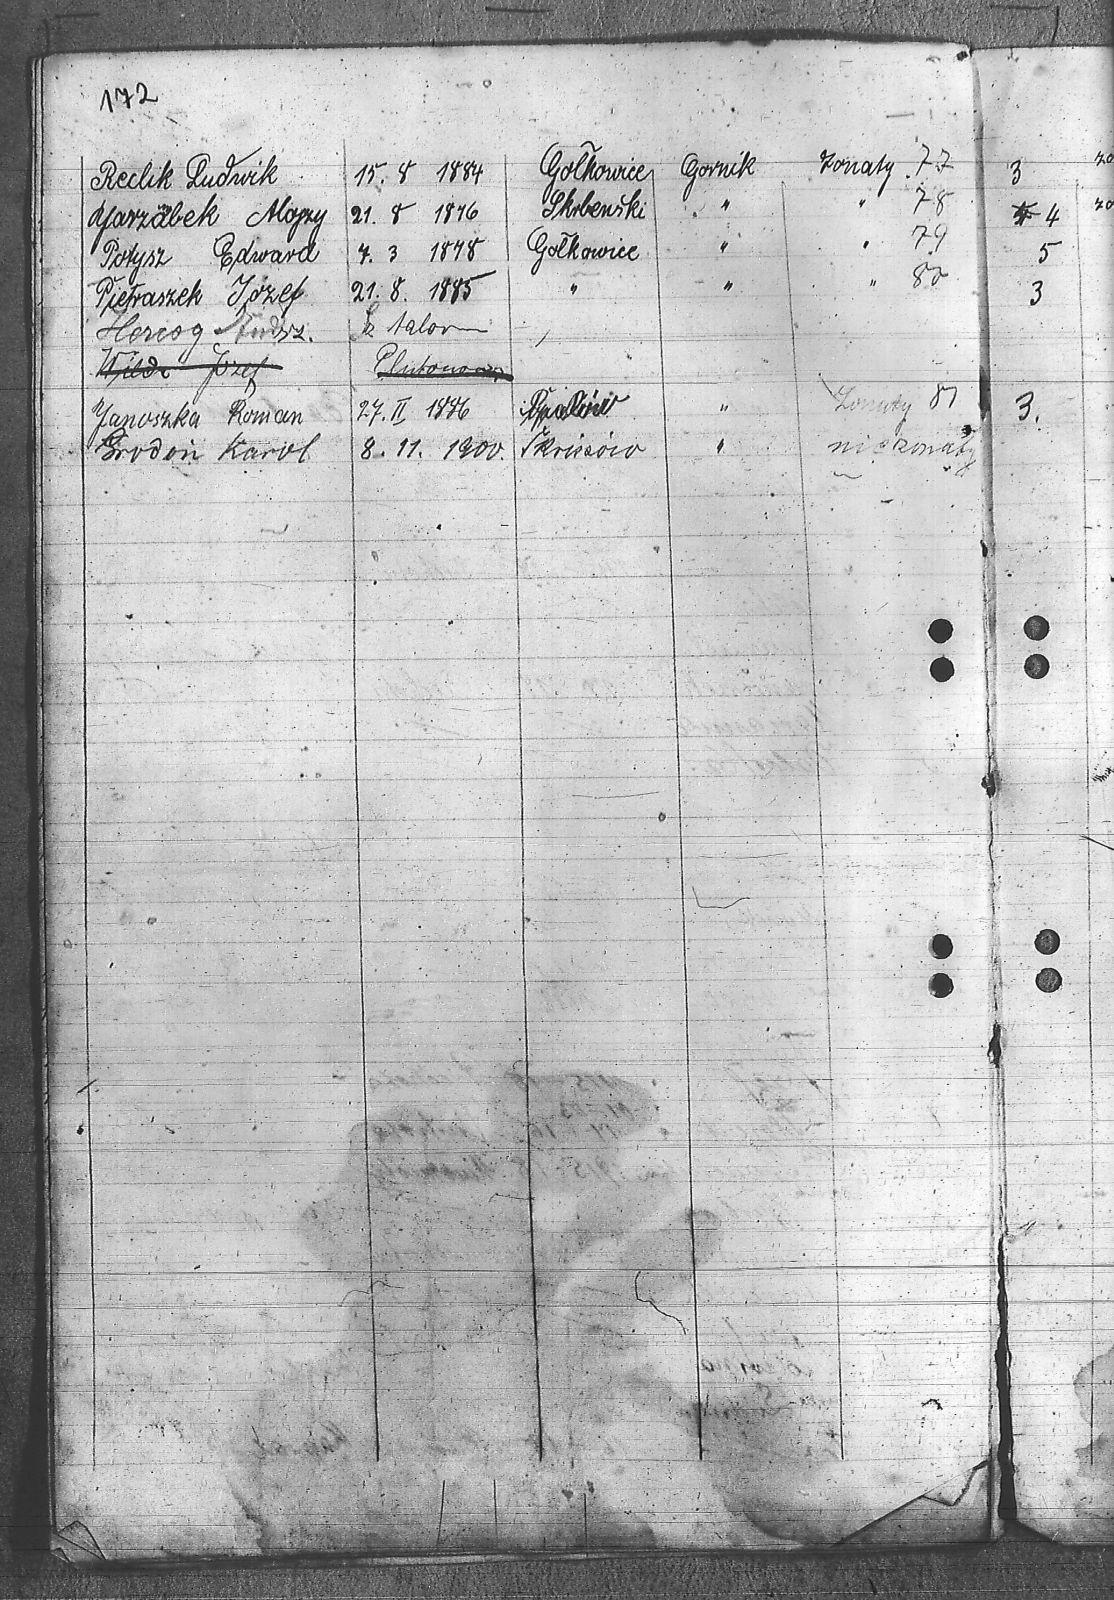 172
Reclik Ludwik 15. 8 1884 Gołkowice Gornik Zonaty 77 3 20
Jarząbek Alojzy 21. 8 1876 Skrbenski " " 78 4 20
Potysz Edward 7. 3 1878 Gołkowice " " 79 5
Pietraszek Józef 21. 8. 1885 " " " 80 3
Herzog
Wilde Józef Plutonowy
Janoszka Roman 27. II 1886 " Zonaty 81 3.
Grodoń Karol 8. 11. 1900. " niezonaty